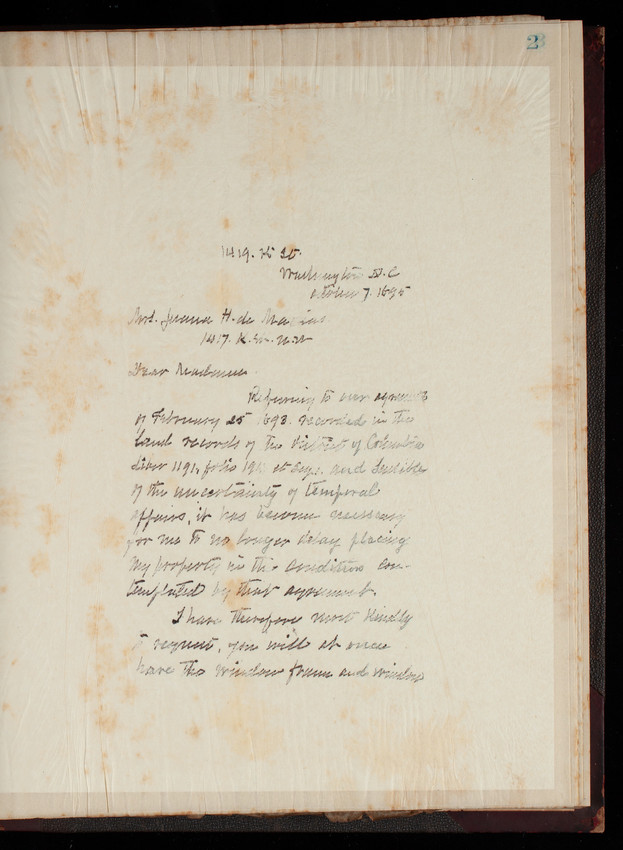 23
1419. K St.
Washington D.C
October 7. 1895
Mrs. Juana H. de
1417. K. St. N.W
Dear Madam
Referring to our agreement
of February 25 1893. recorded in the
Land records of the District of Columbia
Liber 1191, folio et seq:. and
of the uncertainty of temporal
affairs, it has become necessary
for me to no longer delay placing
my property in the condition con-
templated by that agreement.
I have therefore most kindly
to request, you will at once
have the window frame and window